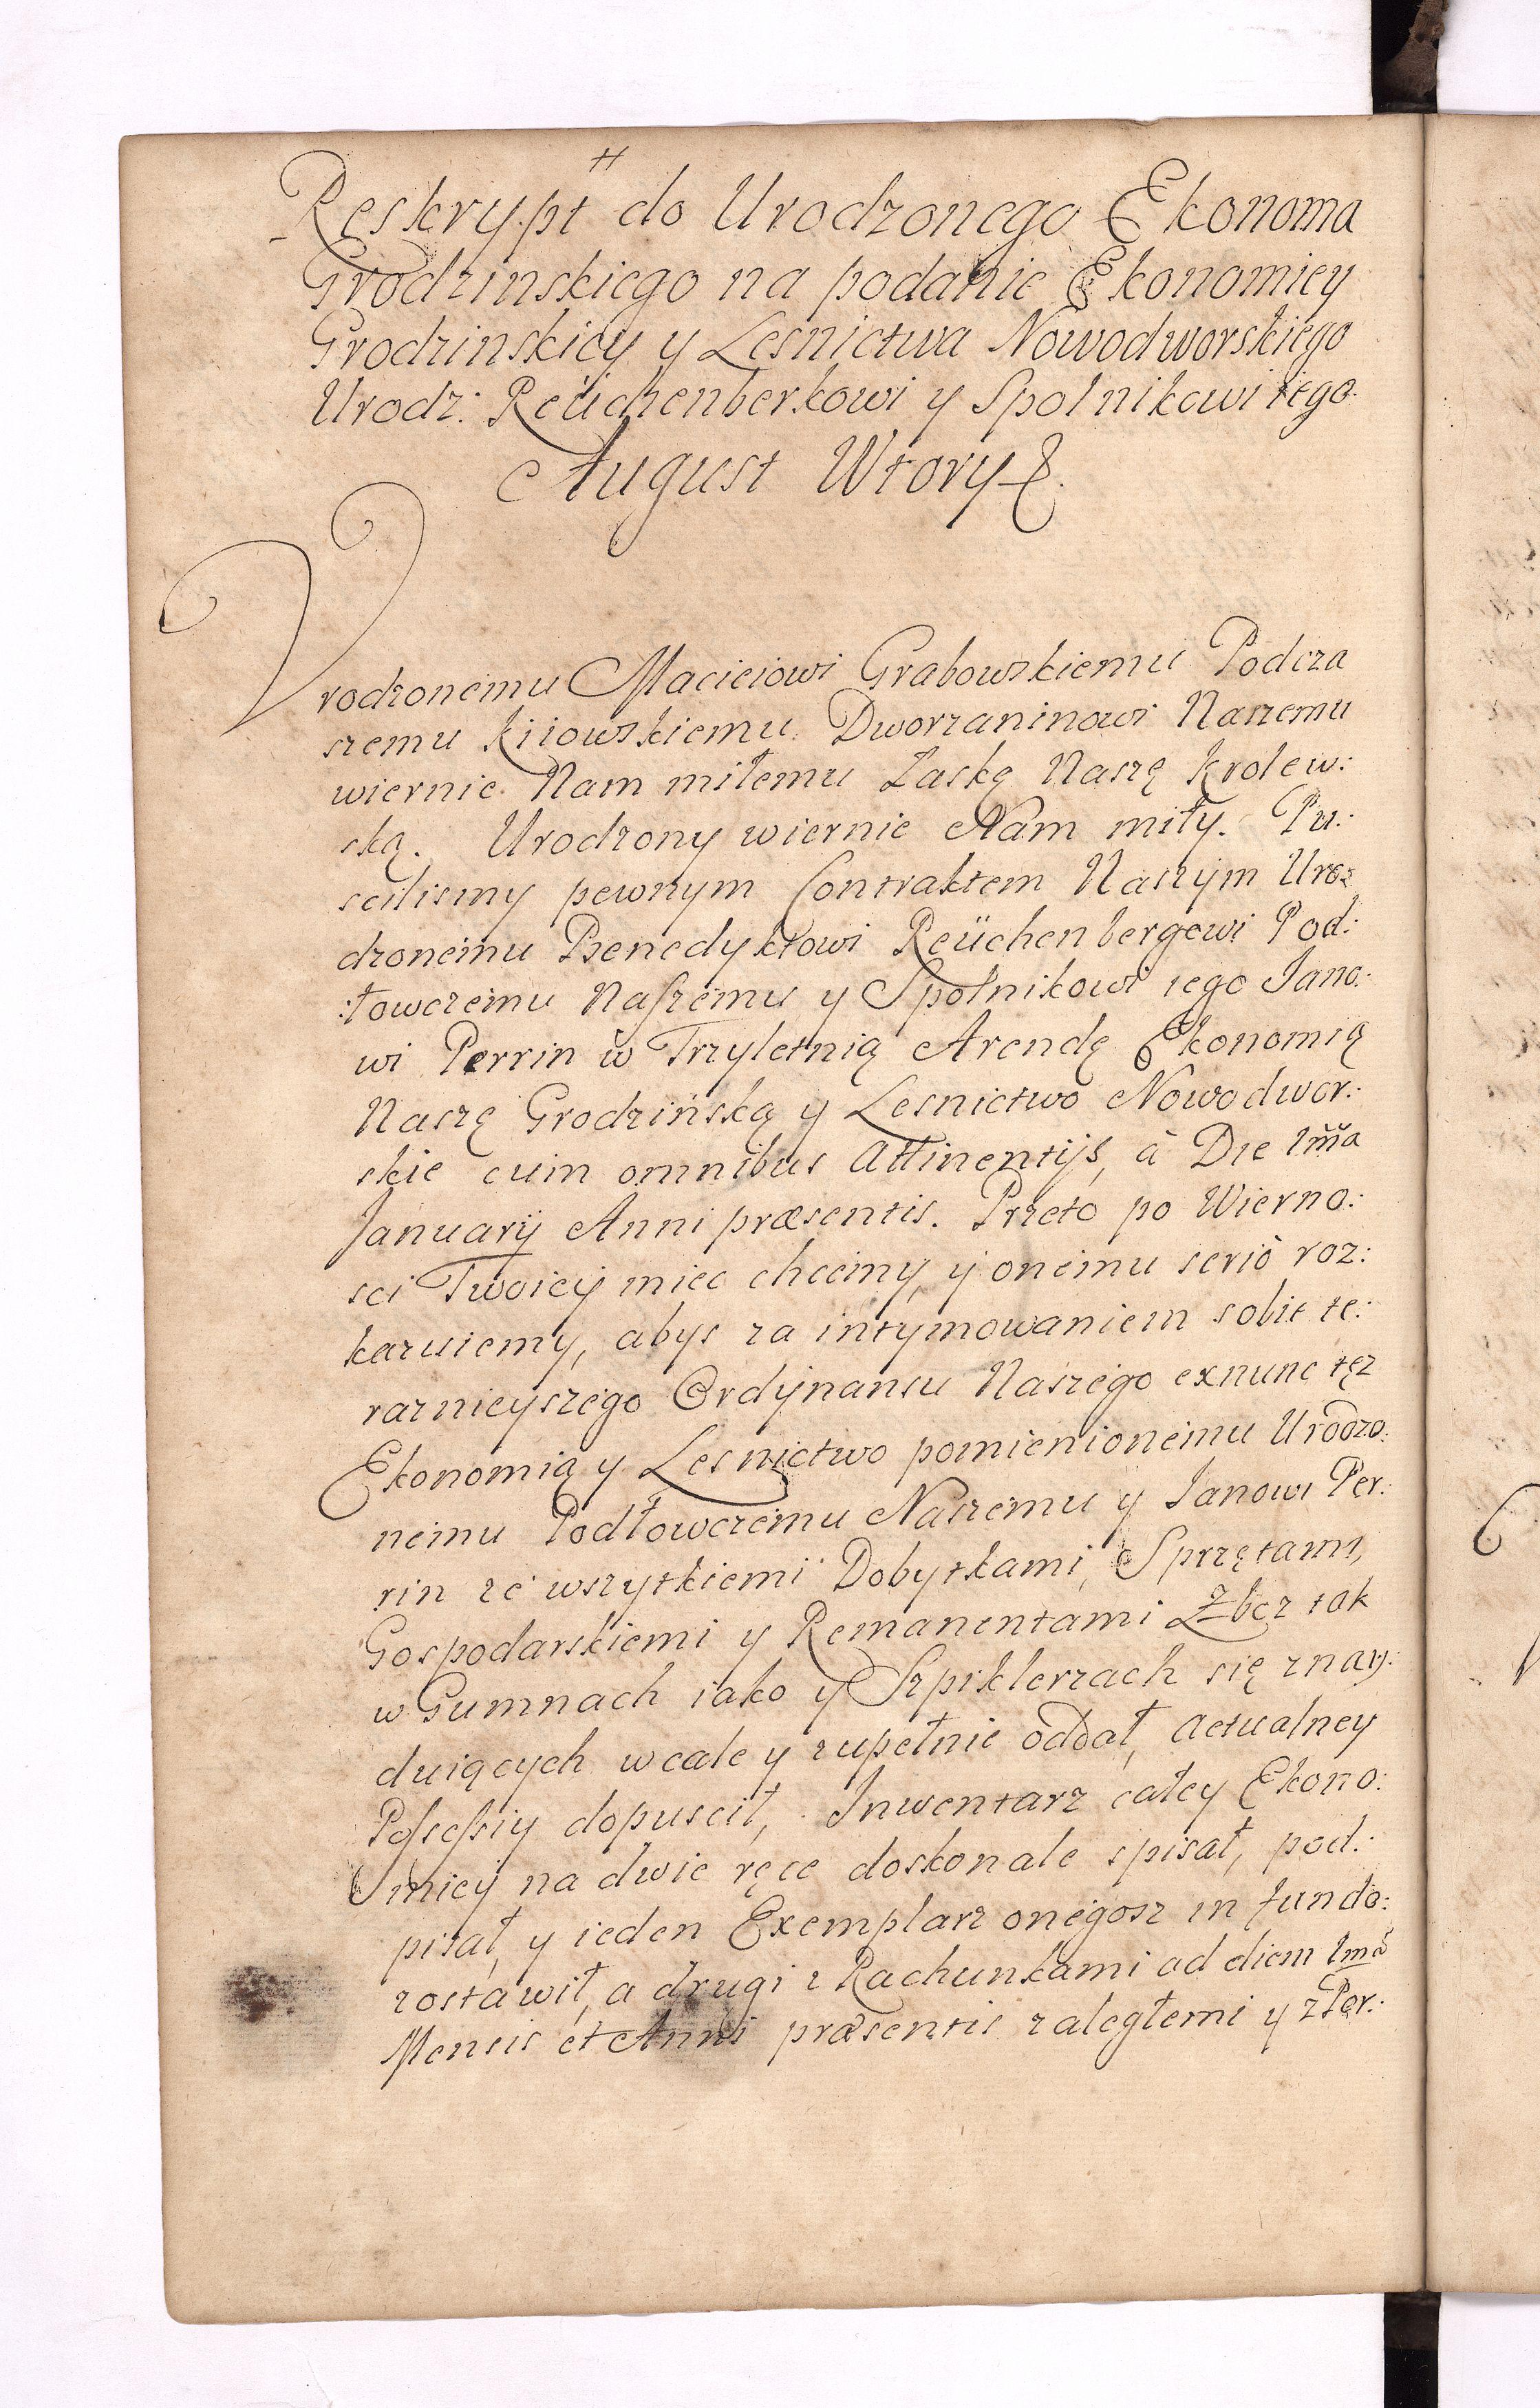 Reskrypt do Urodzonego Ekonoma
Grodzinskiego na podanie Ekonomiey
Grodzinskiey y Lesnictwa Nowodworskiego
Urodz: Reüchenberkowi y Spolnikowi iego
August Wtory &.
Vrodzonemu Macieiowi Grabowskiemu Podcza
szemu Kiiowskiemu Dworzaninowi Naszemu
wiernie Nam miłemu Łaskę Naszę Krolew:
ską. Urodzony wiernie Nam miły. Pu:
scilismy pewnym Contraktem Naszym Uro:
dzonemu Benedyktowi Reüchenbergowi Pod:
:łowczemu Naszemu y Spolnikowi iego Jano:
wi Perrin w Trzyletnią Arendę Ekonomią
Naszę Grodzińską y Lesnictwo Nowodwor:
skie cum omnibus attinentijs, à Die 1ma
Januarij Anni præsentis. Przeto po Wierno:
sci Twoiey miec chcemy, y onemu seriò roz:
kazuiemy, abys za intymowaniem sobie te:
raznieyszego Ordynansu Naszego exnunc tęz
Ekonomią y Lesnictwo pomienionemu Urodzo:
nemu Podłowczemu Naszemu y Janowi Per:
rin ze wszytkiemi Dobytkami, Sprzętami,
Gospodarskiemi y Remanentami Zboz tak
w Gumnach iako y Szpiklerzach się znay:
duiących wcale y zupełnie oddał, actualney
Possessiy dopuscił, Inwentarz całey Ekono:
miey na dwie ręce doskonale spisał, pod:
pisał, y ieden Exemplarz onegosz in fundo:
zostawił, a drugi z Rachunkami ad diem 1mã
Mensis et Anni præsentis zaległemi y z Per: